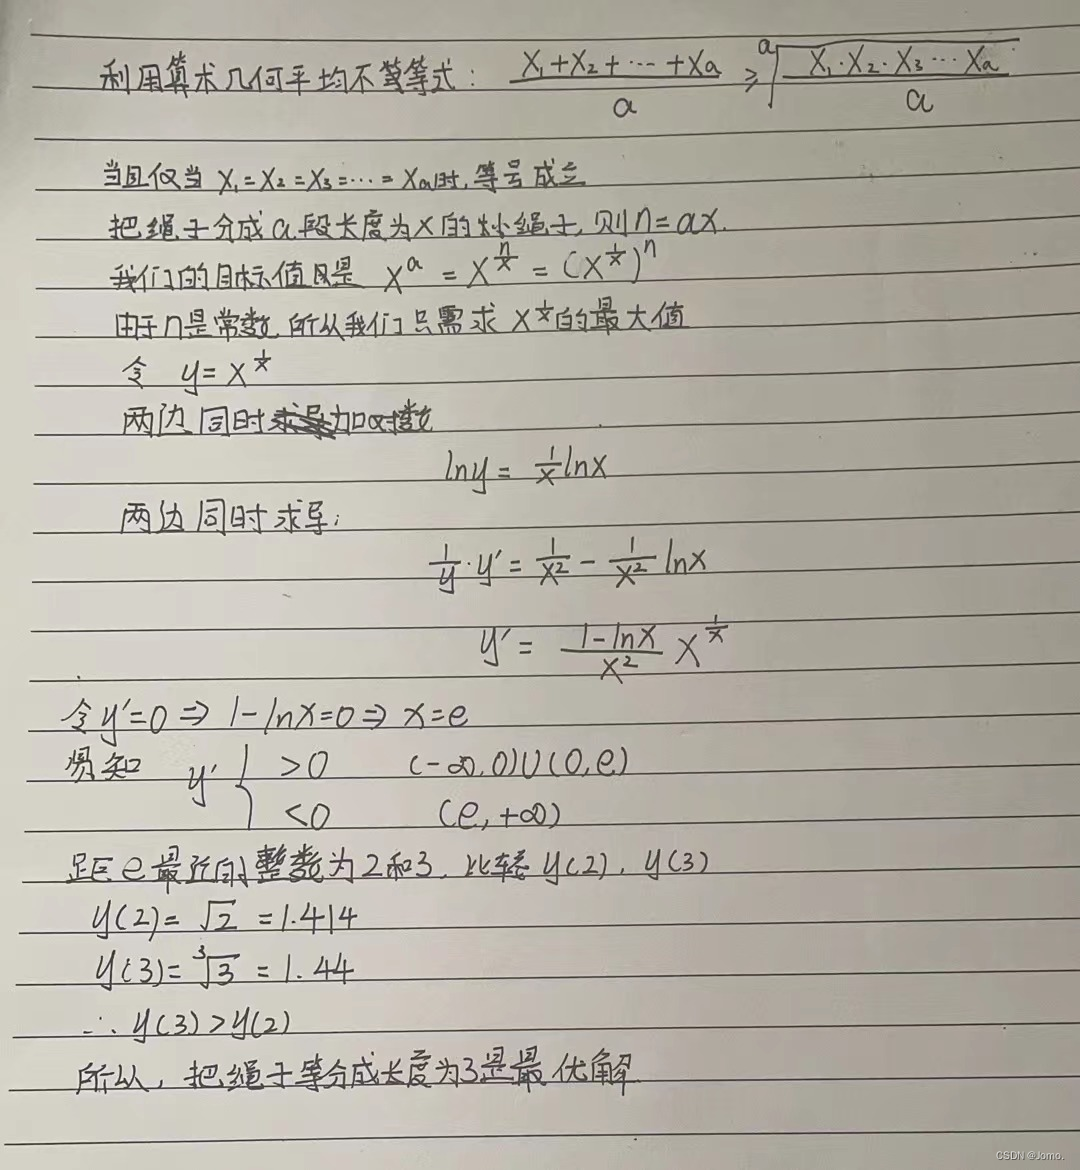 利用算术几何平均不等等式: (X₁+X₂+⋯+Xa)/a ≥ ᵃ√((X₁·X₂·X₃⋯Xa)/a)
当且仅当 X₁=X₂=X₃=⋯=Xa时,等号成立
把绳子分成a段长度为X的小绳子,则n=ax.
我们的目标值是 X^a = X^(n/x) = (X^(1/x))^n
由于n是常数,所以我们只需求 X^(1/x)的最大值
令 y=X^(1/x)
两边同时加对数
lny = 1/x lnx
两边同时求导:
1/y·y′ = 1/x² − 1/x² lnx
y′ = (1−lnx)/x² X^(1/x)
令y′=0 ⇒ 1−lnx=0 ⇒ x=e
易知 y′ { >0 (-∞,0)∪(0,e)
<0 (e,+∞)
距e最近的整数为2和3,比较y(2),y(3)
y(2)=√2=1.414
y(3)=³√3=1.44
∴y(3)>y(2)
所以,把绳子等分成长度为3是最优解
CSDN @Jomo.